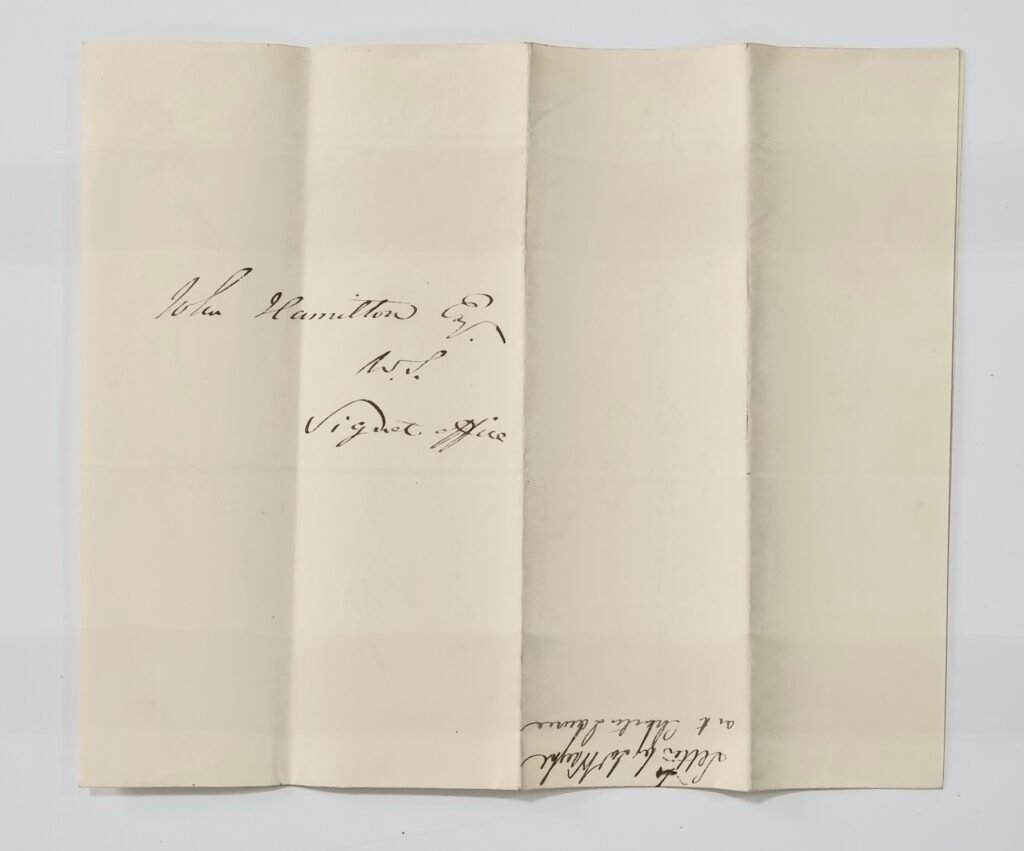 John Hamilton Esq.
W.S.
Signet office
Letter by
as to